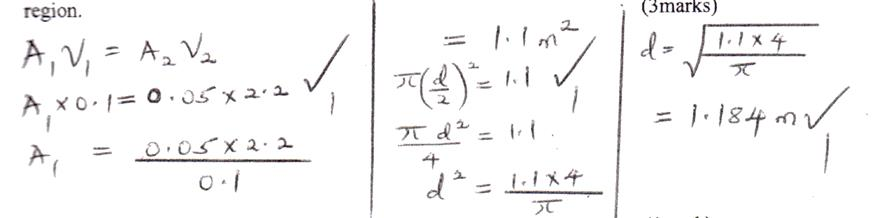 region.
A₁V₁ = A₂V₂
A₁ × 0.1 = 0.05 × 2.2 ✓ 1
A₁ = 0.05 × 2.2 / 0.1
= 1.1 m²
π(d/2)² = 1.1 ✓ 1
π d² / 4 = 1.1.
d² = 1.1 × 4 / π
(3marks)
d = √(1.1 × 4 / π)
= 1.184 m ✓ 1